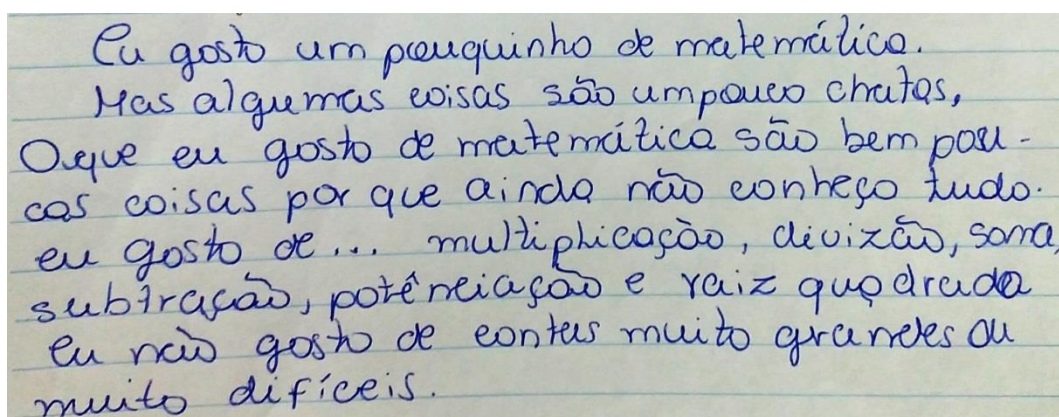 Eu gosto um pouquinho de matemática.
Mas algumas coisas são umpouco chatas,
O que eu gosto de matemática são bem pou-
cas coisas por que ainda não conheço tudo.
eu gosto de... multiplicação, divizão, soma,
subtração, potênciação e raiz quadrada
eu não gosto de contas muito grandes ou
muito difíceis.